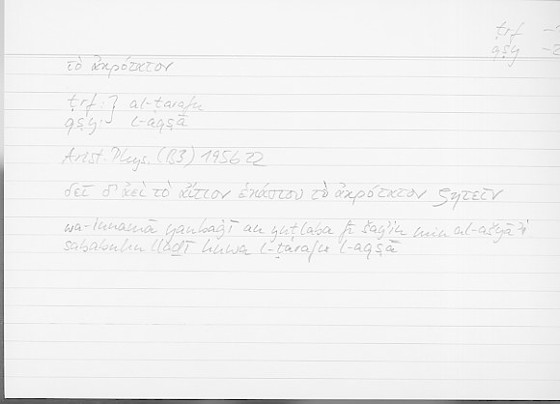 ṭrf
qṣy
τὸ ἀκρότατον
ṭrf: } al-ṭarafu
qṣy: l-aqṣā
Arist. Phys. (B3) 195b22
δεῖ δ' ἀεὶ τὸ αἴτιον ἑκάστου τὸ ἀκρότατον ζητεῖν
wa-innamā yanbaġī an yuṭlaba fī šayʾin min al-ašyāʾi
sababuhu llaḏī huwa l-ṭarafu l-aqṣā